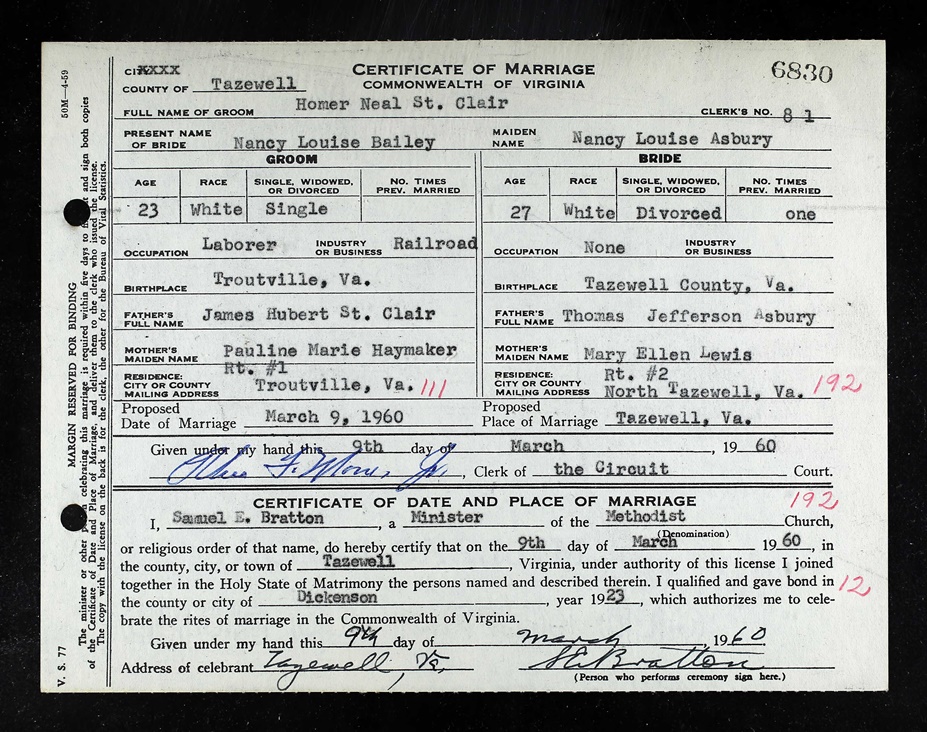 CITXXXX
CERTIFICATE OF MARRIAGE
6830
COUNTY OF Tazewell
COMMONWEALTH OF VIRGINIA
FULL NAME OF GROOM Homer Neal St. Clair CLERK'S NO. 81
PRESENT NAME OF BRIDE Nancy Louise Bailey MAIDEN NAME Nancy Louise Asbury
GROOM BRIDE
AGE RACE SINGLE, WIDOWED, OR DIVORCED NO. TIMES PREV. MARRIED AGE RACE SINGLE, WIDOWED, OR DIVORCED NO. TIMES PREV. MARRIED
23 White Single 27 White Divorced one
OCCUPATION Laborer INDUSTRY OR BUSINESS Railroad OCCUPATION None INDUSTRY OR BUSINESS
BIRTHPLACE Troutville, Va. BIRTHPLACE Tazewell County, Va.
FATHER'S FULL NAME James Hubert St. Clair FATHER'S FULL NAME Thomas Jefferson Asbury
MOTHER'S MAIDEN NAME Pauline Marie Haymaker MOTHER'S MAIDEN NAME Mary Ellen Lewis
RESIDENCE: CITY OR COUNTY MAILING ADDRESS Rt. #1 Troutville, Va. 111 RESIDENCE: CITY OR COUNTY MAILING ADDRESS Rt. #2 North Tazewell, Va. 192
Proposed Date of Marriage March 9, 1960 Proposed Place of Marriage Tazewell, Va.
Given under my hand this 9th day of March, 1960
, Clerk of the Circuit Court.
CERTIFICATE OF DATE AND PLACE OF MARRIAGE 192
I, Samuel E. Bratton, a Minister of the Methodist Church,
(Denomination)
or religious order of that name, do hereby certify that on the 9th day of March 1960, in
the county, city, or town of Tazewell, Virginia, under authority of this license I joined
together in the Holy State of Matrimony the persons named and described therein. I qualified and gave bond in 12
the county or city of Dickenson, year 1923, which authorizes me to cele-
brate the rites of marriage in the Commonwealth of Virginia.
Given under my hand this 9th day of March, 1960
Address of celebrant Tazewell, Va. S.E. Bratton
(Person who performs ceremony sign here.)
50M—4-59
V. S. 77
MARGIN RESERVED FOR BINDING
The minister or other celebrating this marriage is required within five days to and sign both copies
of the Certificate of Date and Place of Marriage, and deliver them to the clerk who issued the license.
The copy with the license on the back is for the clerk, the other for the Bureau of Vital Statistics.